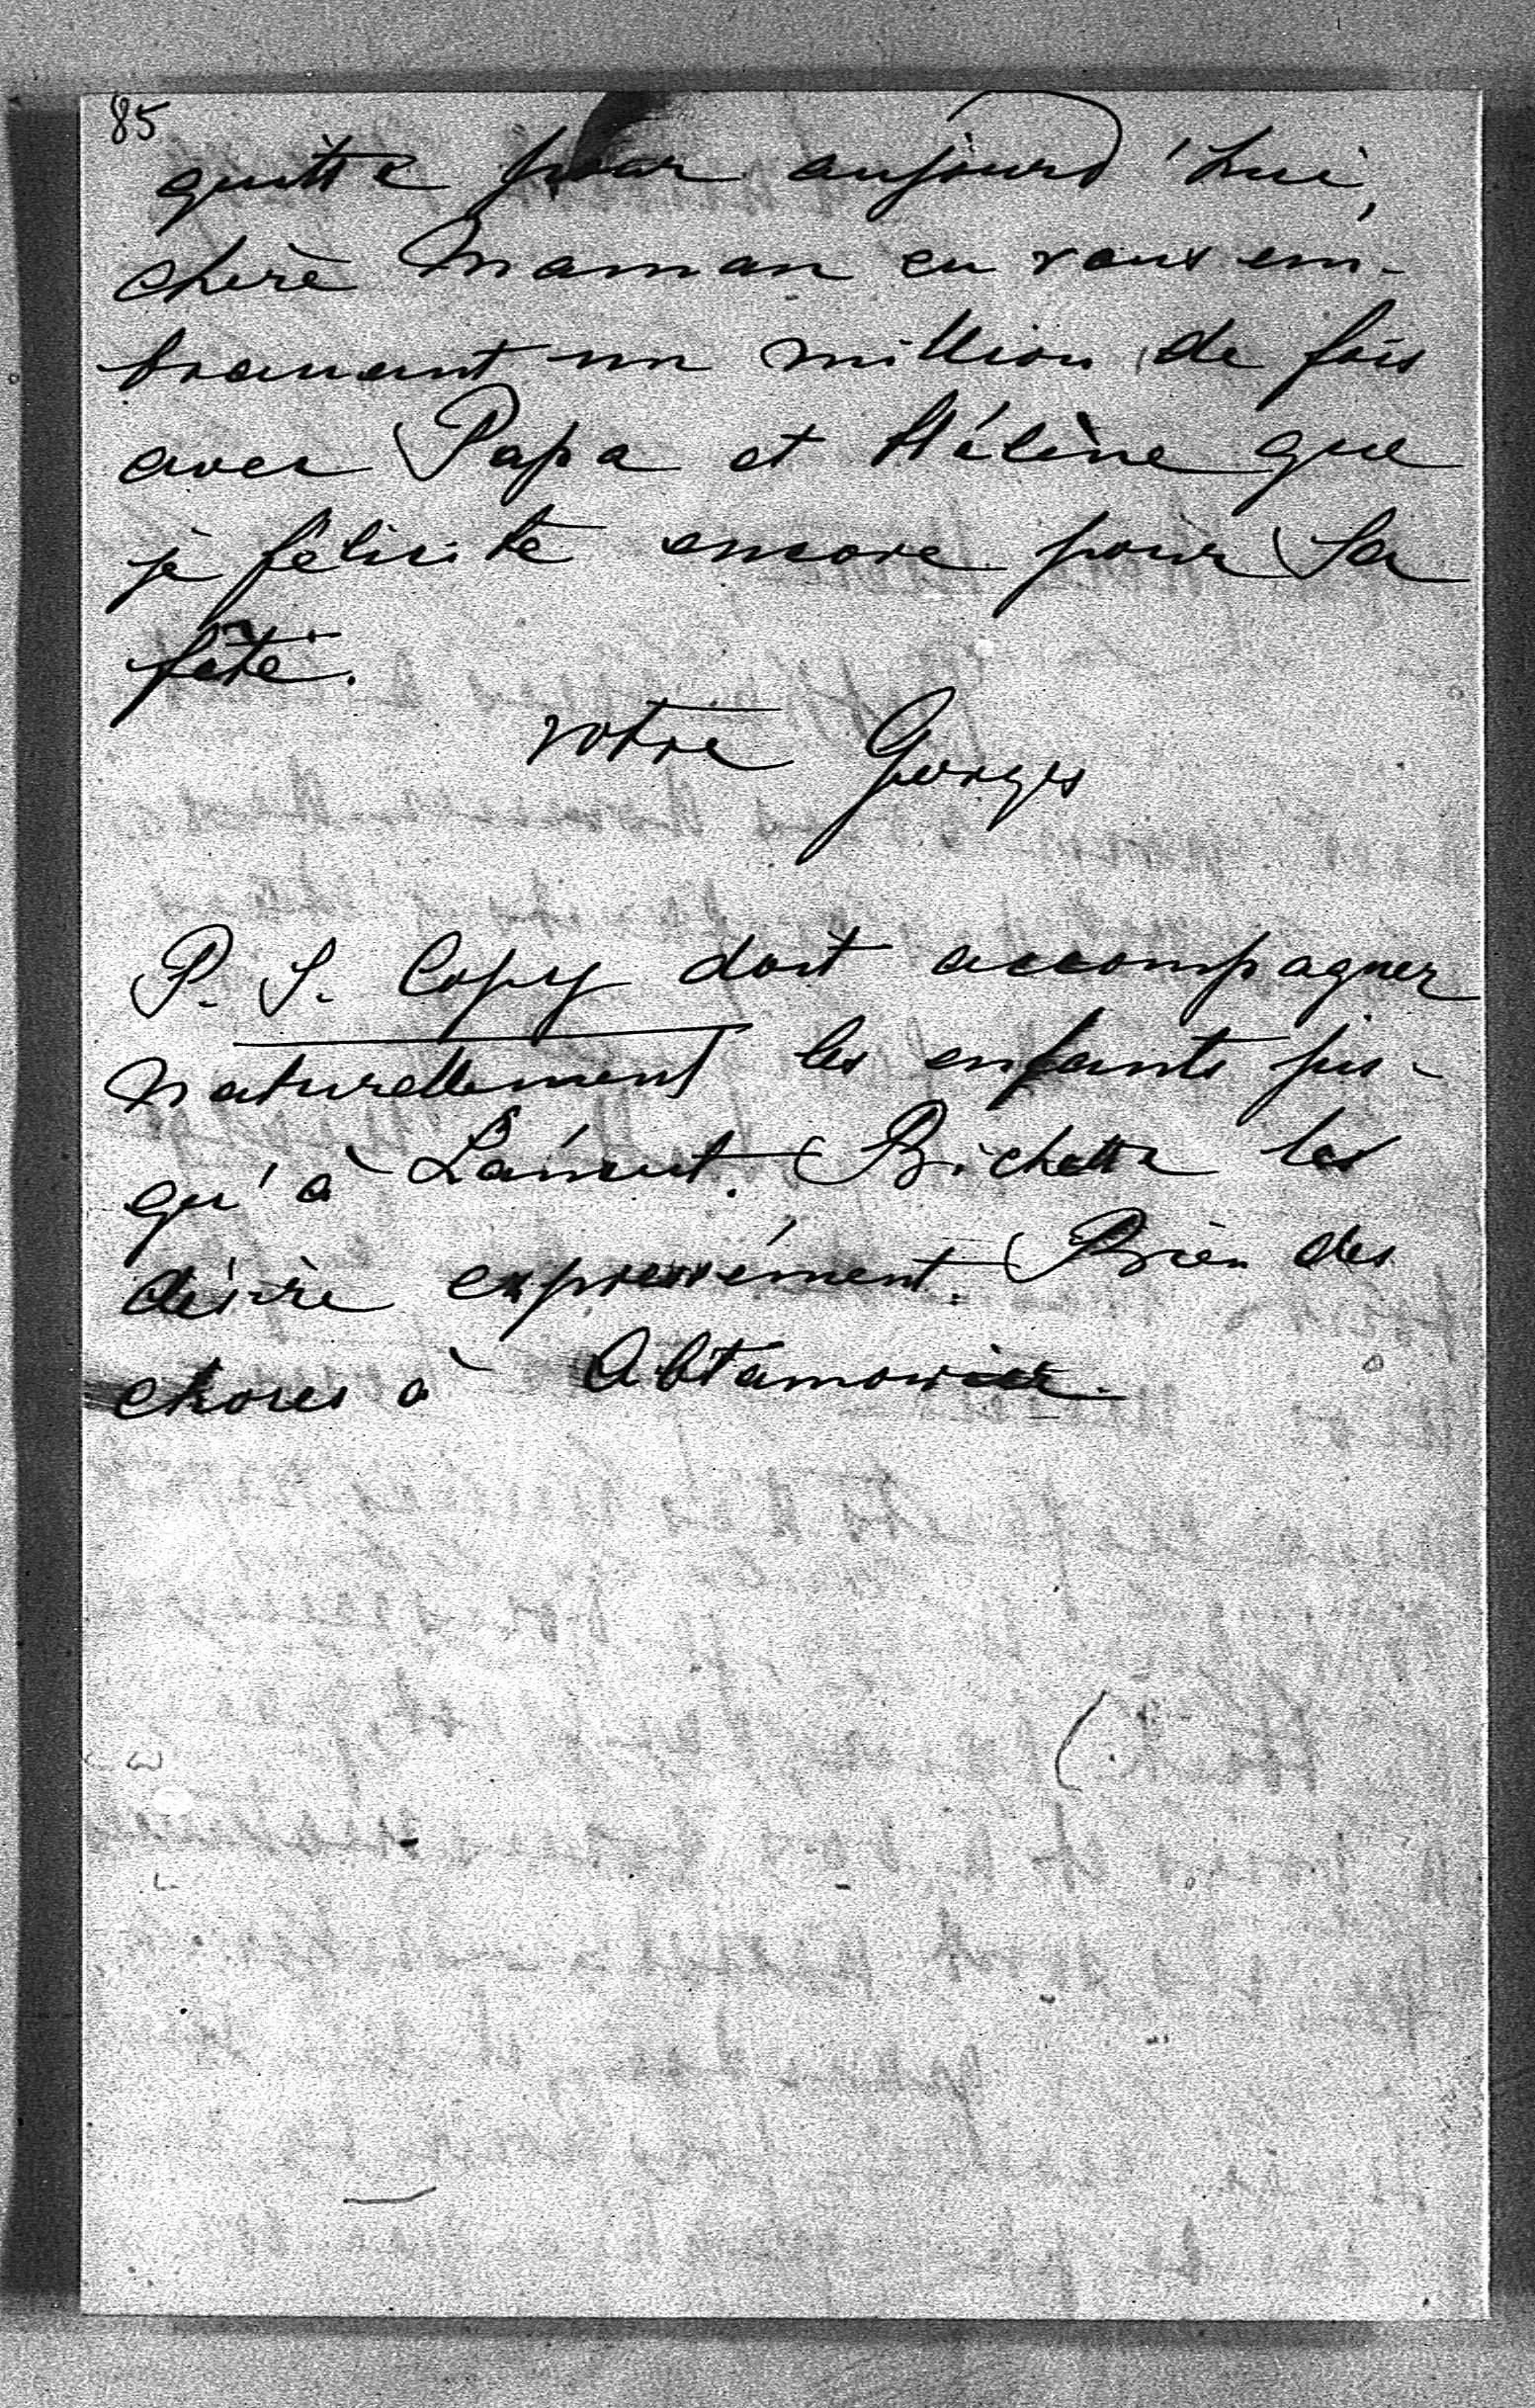 85
quitte pour aujourd'hui,
chère Maman en vous em-
brassant un million de fois
avec Papa et Hélène que
je félicite encore pour sa
fête.
votre Georges
P. S. Copy doit accompagner
naturellement les enfants jus-
qu'à Bichette les
désire expressément. Bien des
choses à